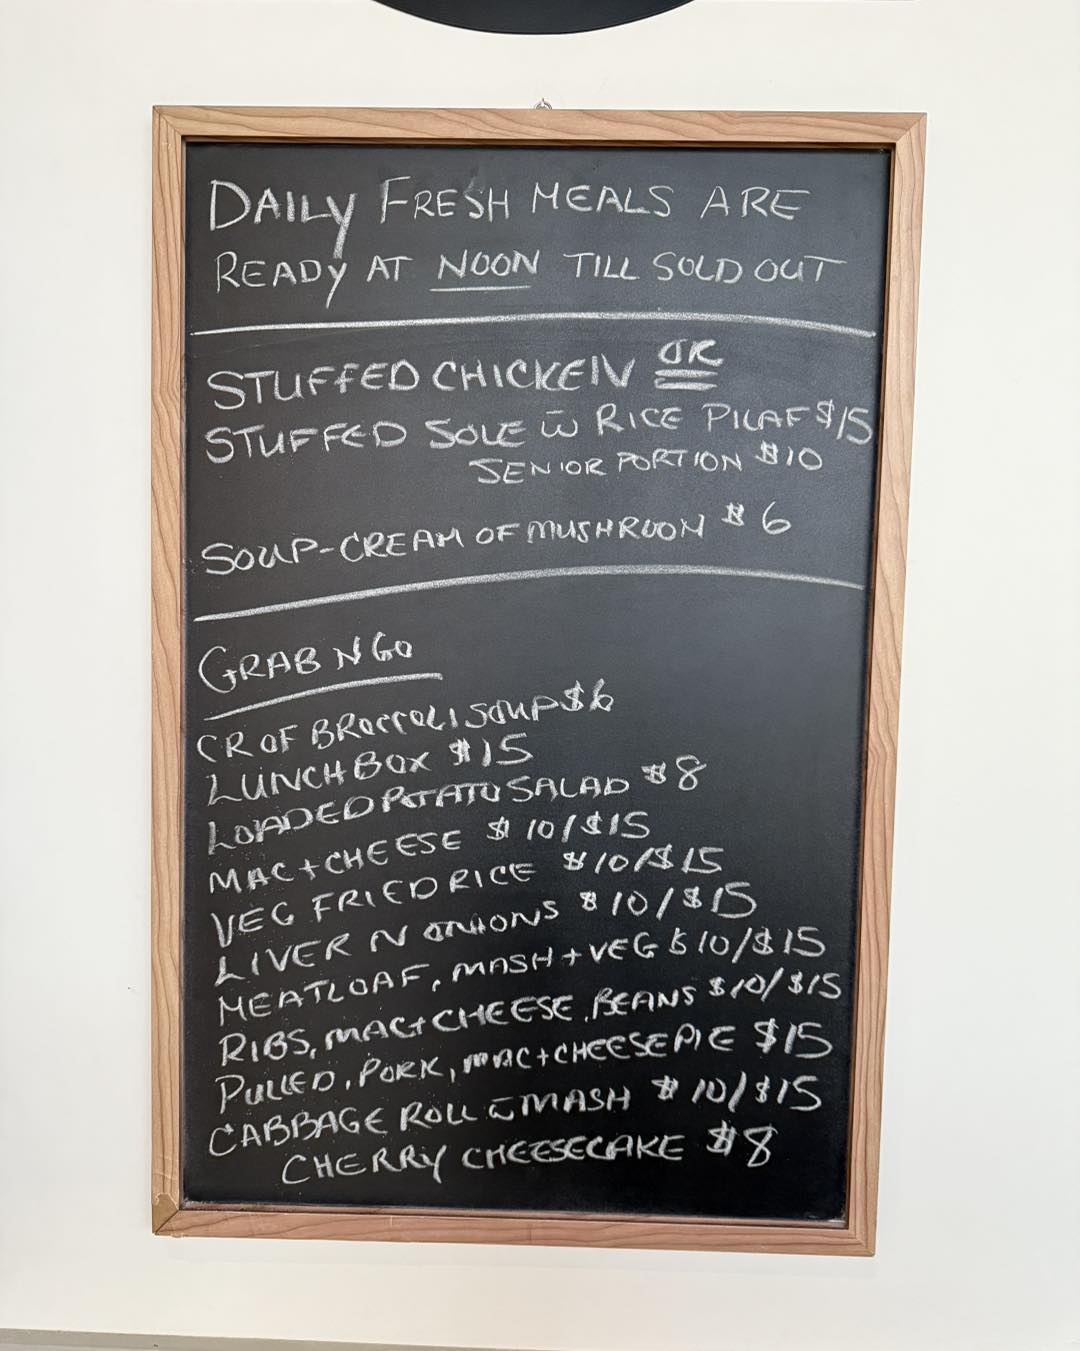 DAILY FRESH MEALS ARE
READY AT NOON TILL SOLD OUT
STUFFED CHICKEN OR
STUFFED SOLE w̄ RICE PILAF $15
SENIOR PORTION $10
SOUP-CREAM OF MUSHROOM $6
GRAB N GO
CR OF BROCCOLI SOUP $6
LUNCH BOX $15
LOADED POTATO SALAD $8
MAC + CHEESE $10/$15
VEG FRIED RICE $10/$15
LIVER N ONIONS $10/$15
MEATLOAF, MASH + VEG $10/$15
RIBS, MAC + CHEESE, BEANS $10/$15
PULLED, PORK, MAC + CHEESE PIE $15
CABBAGE ROLL w̄ MASH $10/$15
CHERRY CHEESECAKE $8